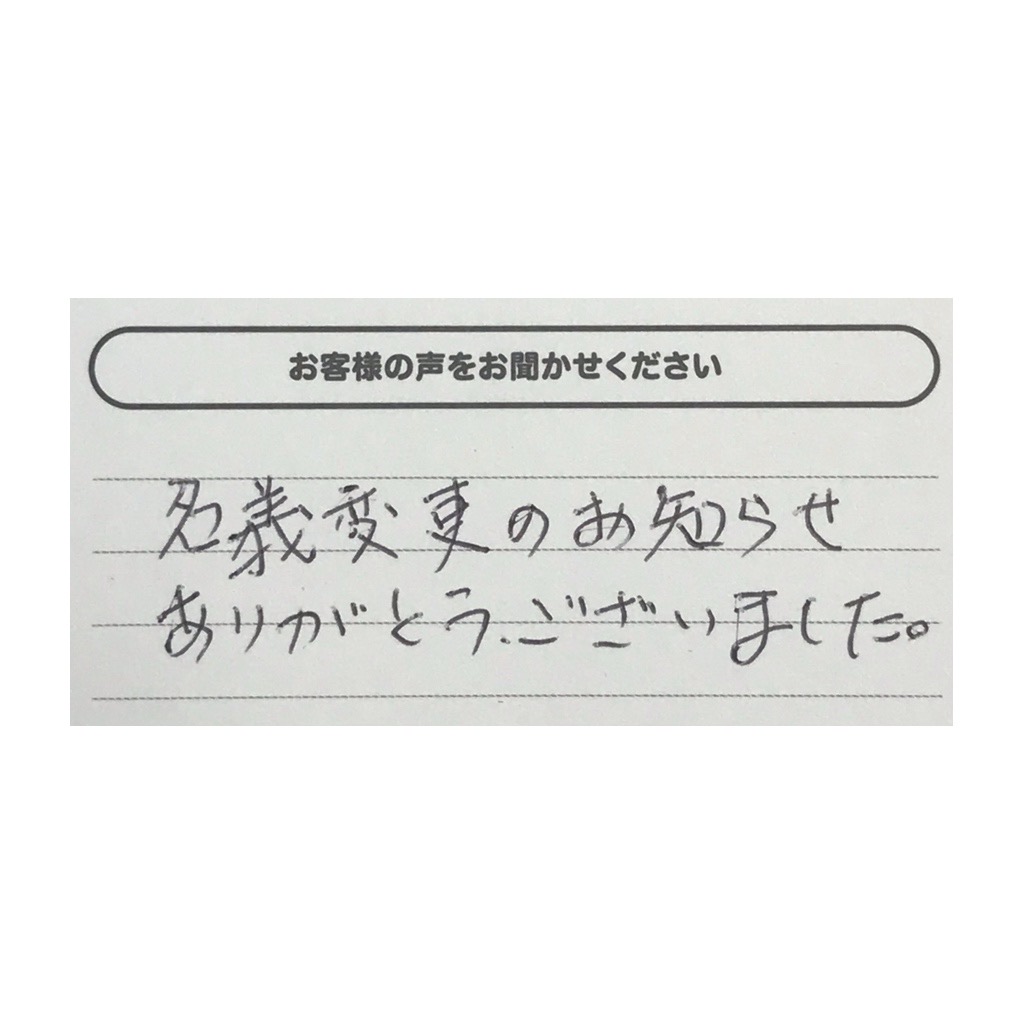 お客様の声をお聞かせください
名義変更のお知らせ
ありがとうございました。